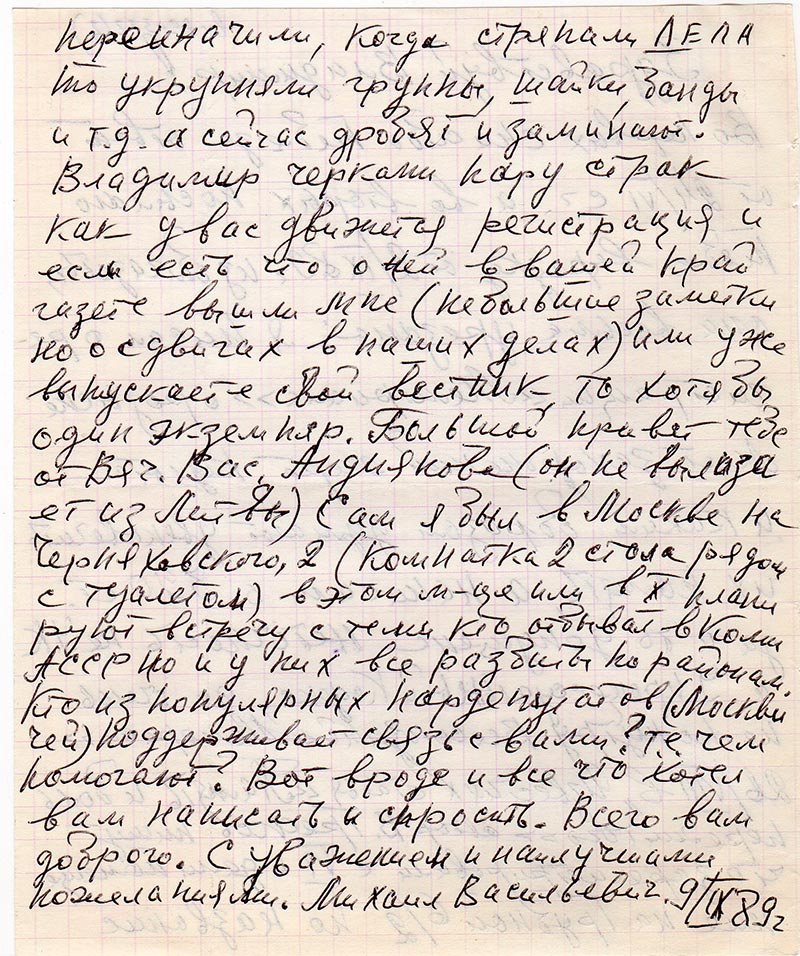 переиначили, когда стряпали ДЕЛА
то укрупняли группы, шайки, банды
и т.д. а сейчас дробят и заминают.
Владимир черкани пару строк
как у вас движется регистрация и
если есть что о ней в вашей край
газете вышли мне (небольшие заметки
но о сдвигах в наших делах) или уже
выпускаете свой вестник, то хотя бы
один экземпляр. Большой привет тебе
от Вяч. Вас. (он не вылаза
ет из Литвы) Сам я был в Москве на
Черняховского, 2 (комнатка 2 стола рядом
с туалетом) в этом м-це или в X плани
руют встречу с теми кто отбывал в Коми
АССР но и у них все разбиты по районам.
Кто из популярных нардепутатов (Москви
чей) поддерживает связь с вами? те чем
помогают? Вот вроде и все что хотел
вам написать и спросить. Всего вам
доброго. С уважением и наилучшими
пожеланиями. Михаил Васильевич. 9/IX 89г